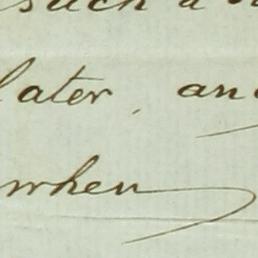 such a
later, an
when